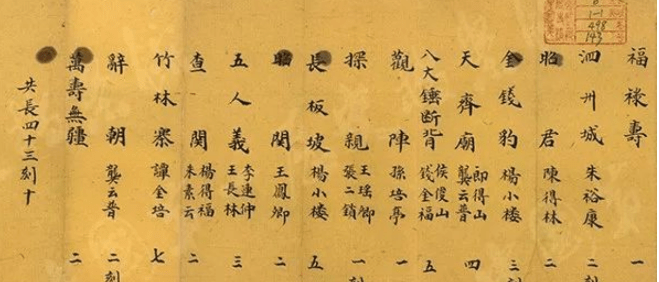 福祿壽 一
泗州城 朱裕康 二刻
昭君 陳得林 二
金錢豹 楊小樓 三刻
天齊廟 郎得山 龔云普 四
八大錘断背 侯俊山 錢金福 五
觀陣 孫培亭 一
探親 王瑶卿 張二鎖 一刻
長板坡 楊小楼 五
昭関 王鳳卿 二
五人義 李連仲 王長林 三
查関 楊得福 朱素云 二
竹林寨 譚金培 七
辭朝 龔云普 二刻
萬壽無疆 二
共長四十三刻十
6
1-1
498
143